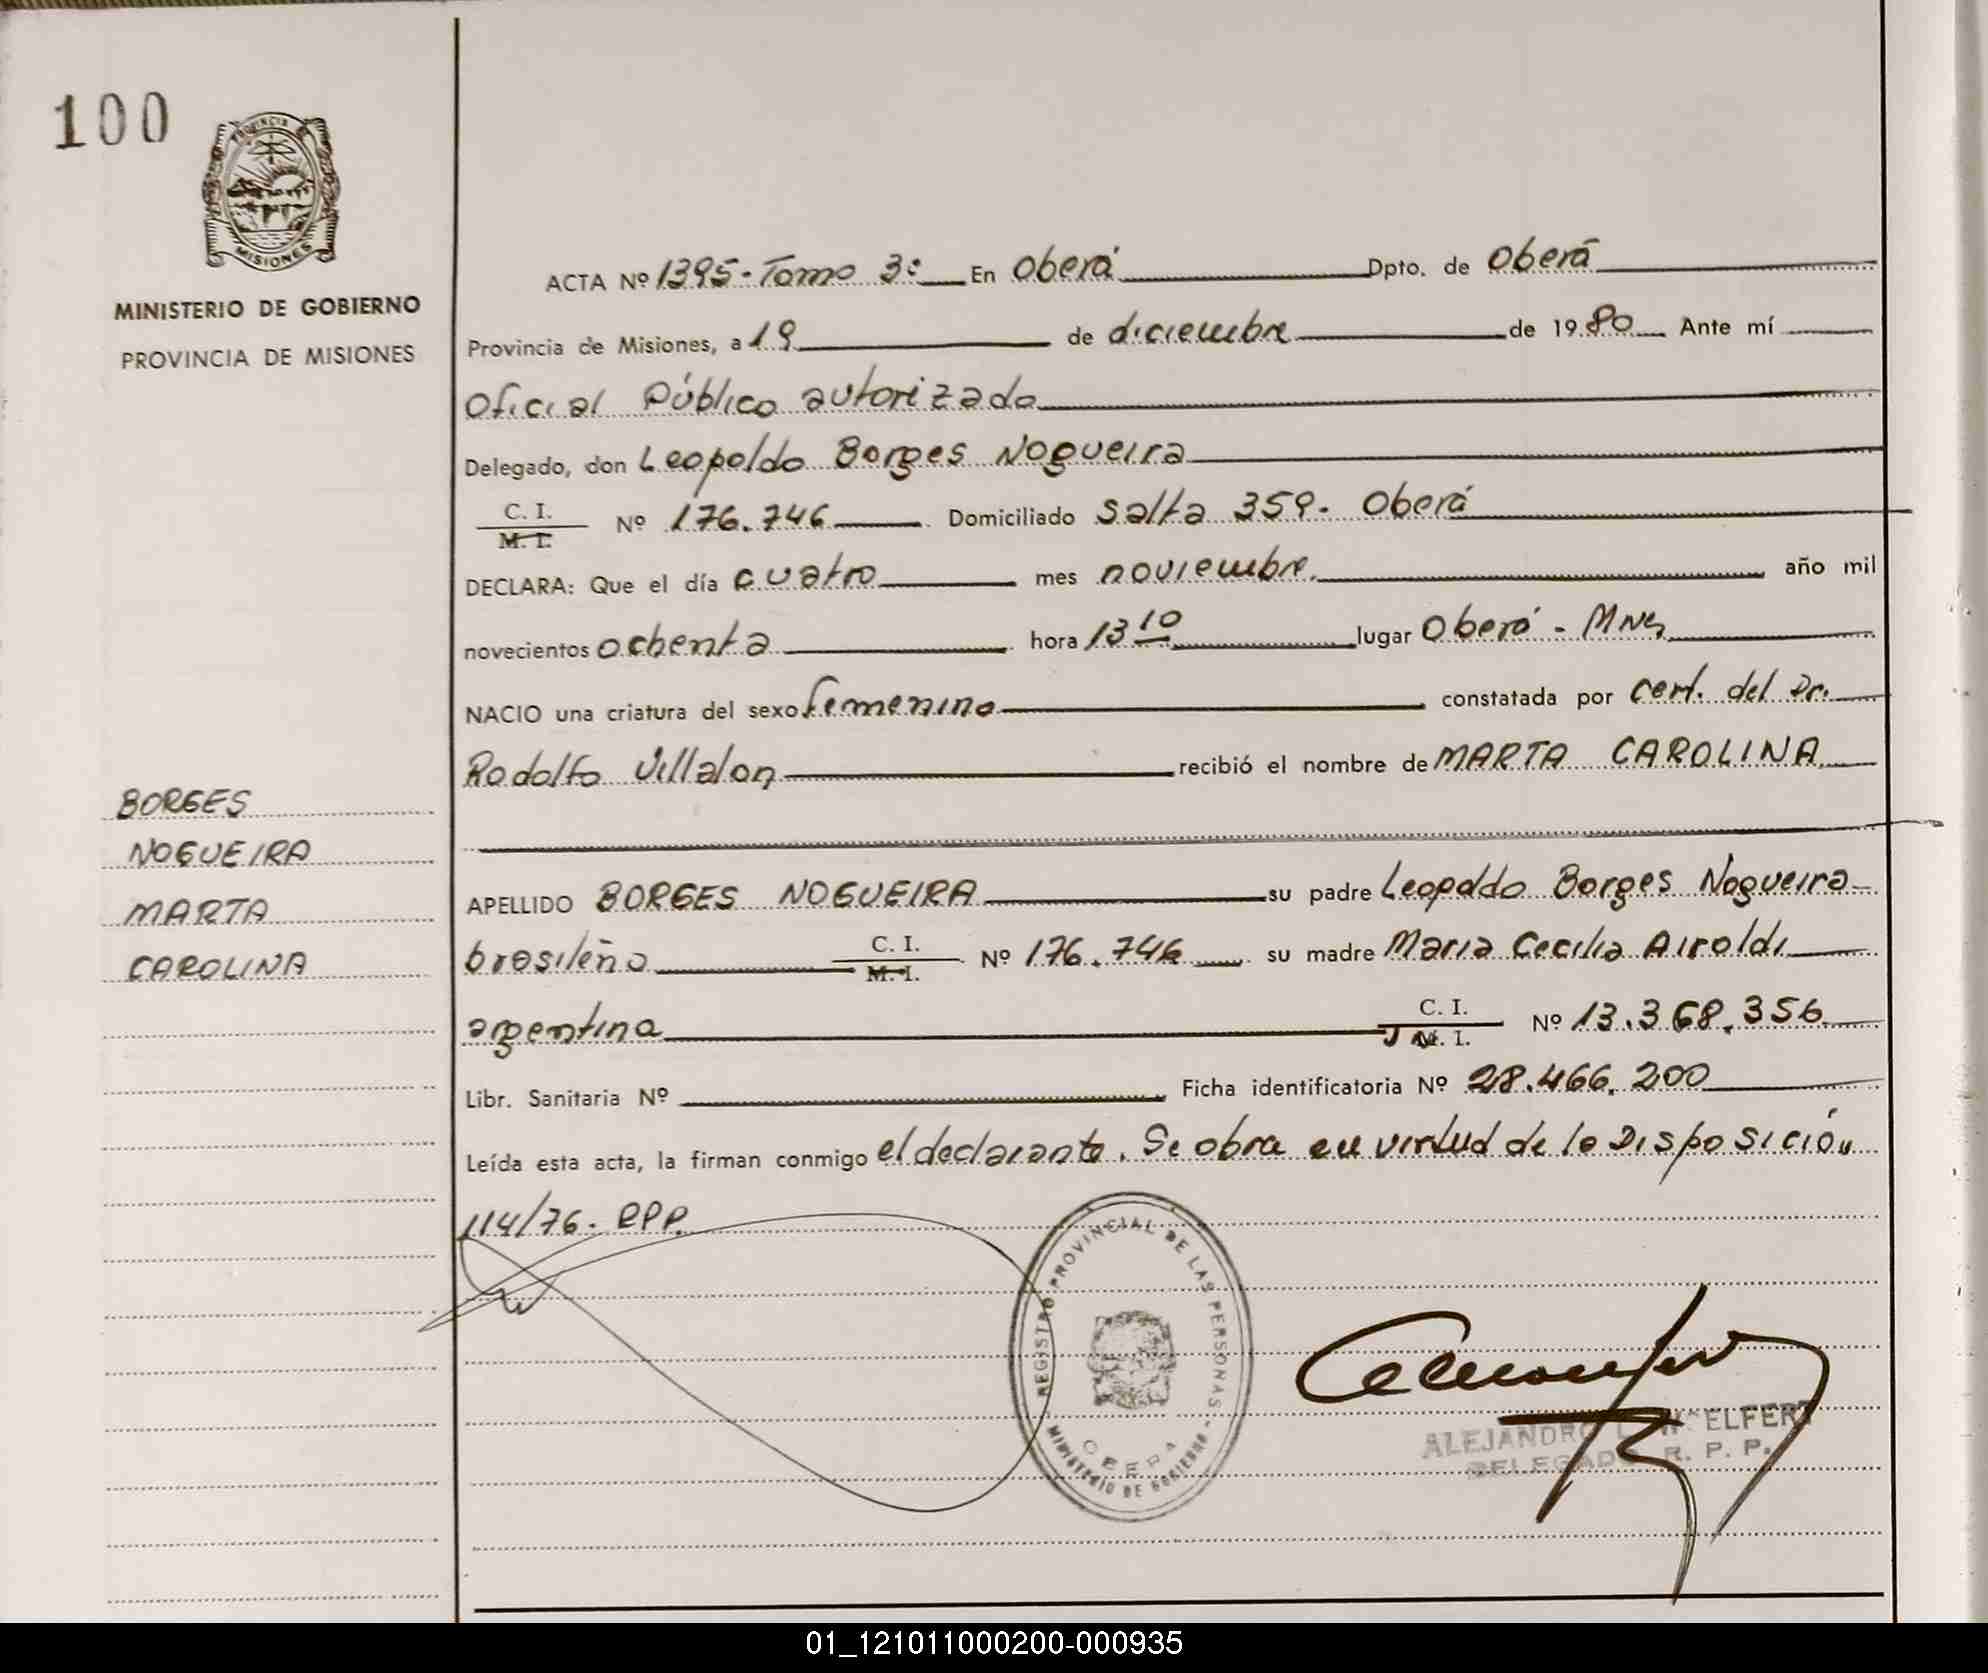 100
PROVINCIA DE
MISIONES
MINISTERIO DE GOBIERNO
PROVINCIA DE MISIONES
ACTA Nº 1395-Tomo 3º En Oberá Dpto. de Oberá
Provincia de Misiones, a 19 de diciembre de 1980 Ante mí
Oficial Público autorizado
Delegado, don Leopoldo Borges Nogueira
C. I.
M. I. Nº 176.746 Domiciliado Salta 359. Oberá
DECLARA: Que el día cuatro mes noviembre año mil
novecientos ochenta hora 13 10 lugar Oberá - Mnes
NACIO una criatura del sexo femenino constatada por cert. del Dr.
Rodolfo Villalon recibió el nombre de MARTA CAROLINA
BORGES
NOGUEIRA
MARTA
CAROLINA
APELLIDO BORGES NOGUEIRA su padre Leopoldo Borges Nogueira
brasileño C. I.
M. I. Nº 176.746 su madre Maria Cecilia Airoldi
argentina C. I.
M. I. Nº 13.368.356
Libr. Sanitaria Nº Ficha identificatoria Nº 28.466.200
Leída esta acta, la firman conmigo el declarante. Se obra en virtud de la Disposición
114/76. RPP.
REGISTRO PROVINCIAL DE LAS PERSONAS
MINISTERIO DE GOBIERNO
OBERA
ALEJANDRO
DELEGADO R. P. P.
01_121011000200-000935